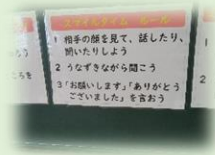 スマイルタイム ルール
1 相手の顔を見て、話したり、
聞いたりしよう
2 うなずきながら聞こう
3 「お願いします」「ありがとう
ございました」を言おう